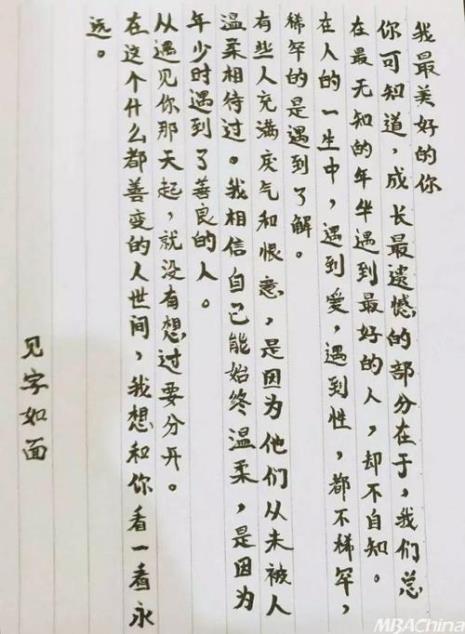 我最美好的你
你可知道，成长最遗憾的部分在于，我们总
在最无知的年华遇到最好的人，却不自知。
在人的一生中，遇到爱，遇到性，都不稀罕，
稀罕的是遇到了解。
有些人充满戾气和恨意，是因为他们从未被人
温柔相待过。我相信自己能始终温柔，是因为
年少时遇到了善良的人。
从遇见你那天起，就没有想过要分开。
在这个什么都善变的人世间，我想和你看一看永
远。
见字如面
MBAChina